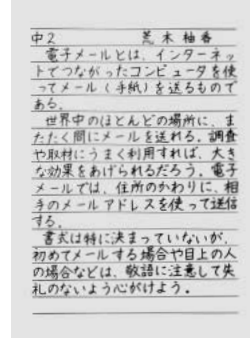 中2 荒木柚香
電子メールとは、インターネッ
トでつながったコンピュータを使
ってメール(手紙)を送るもので
ある。
世界中のほとんどの場所に、ま
たたく間にメールを送れる。調査
や取材にうまく利用すれば、大き
な効果をあげられるだろう。電子
メールでは、住所のかわりに、相
手のメールアドレスを使って送信
する。
書式は特に決まっていないが、
初めてメールする場合や目上の人
の場合などは、敬語に注意して失
礼のないよう心がけよう。